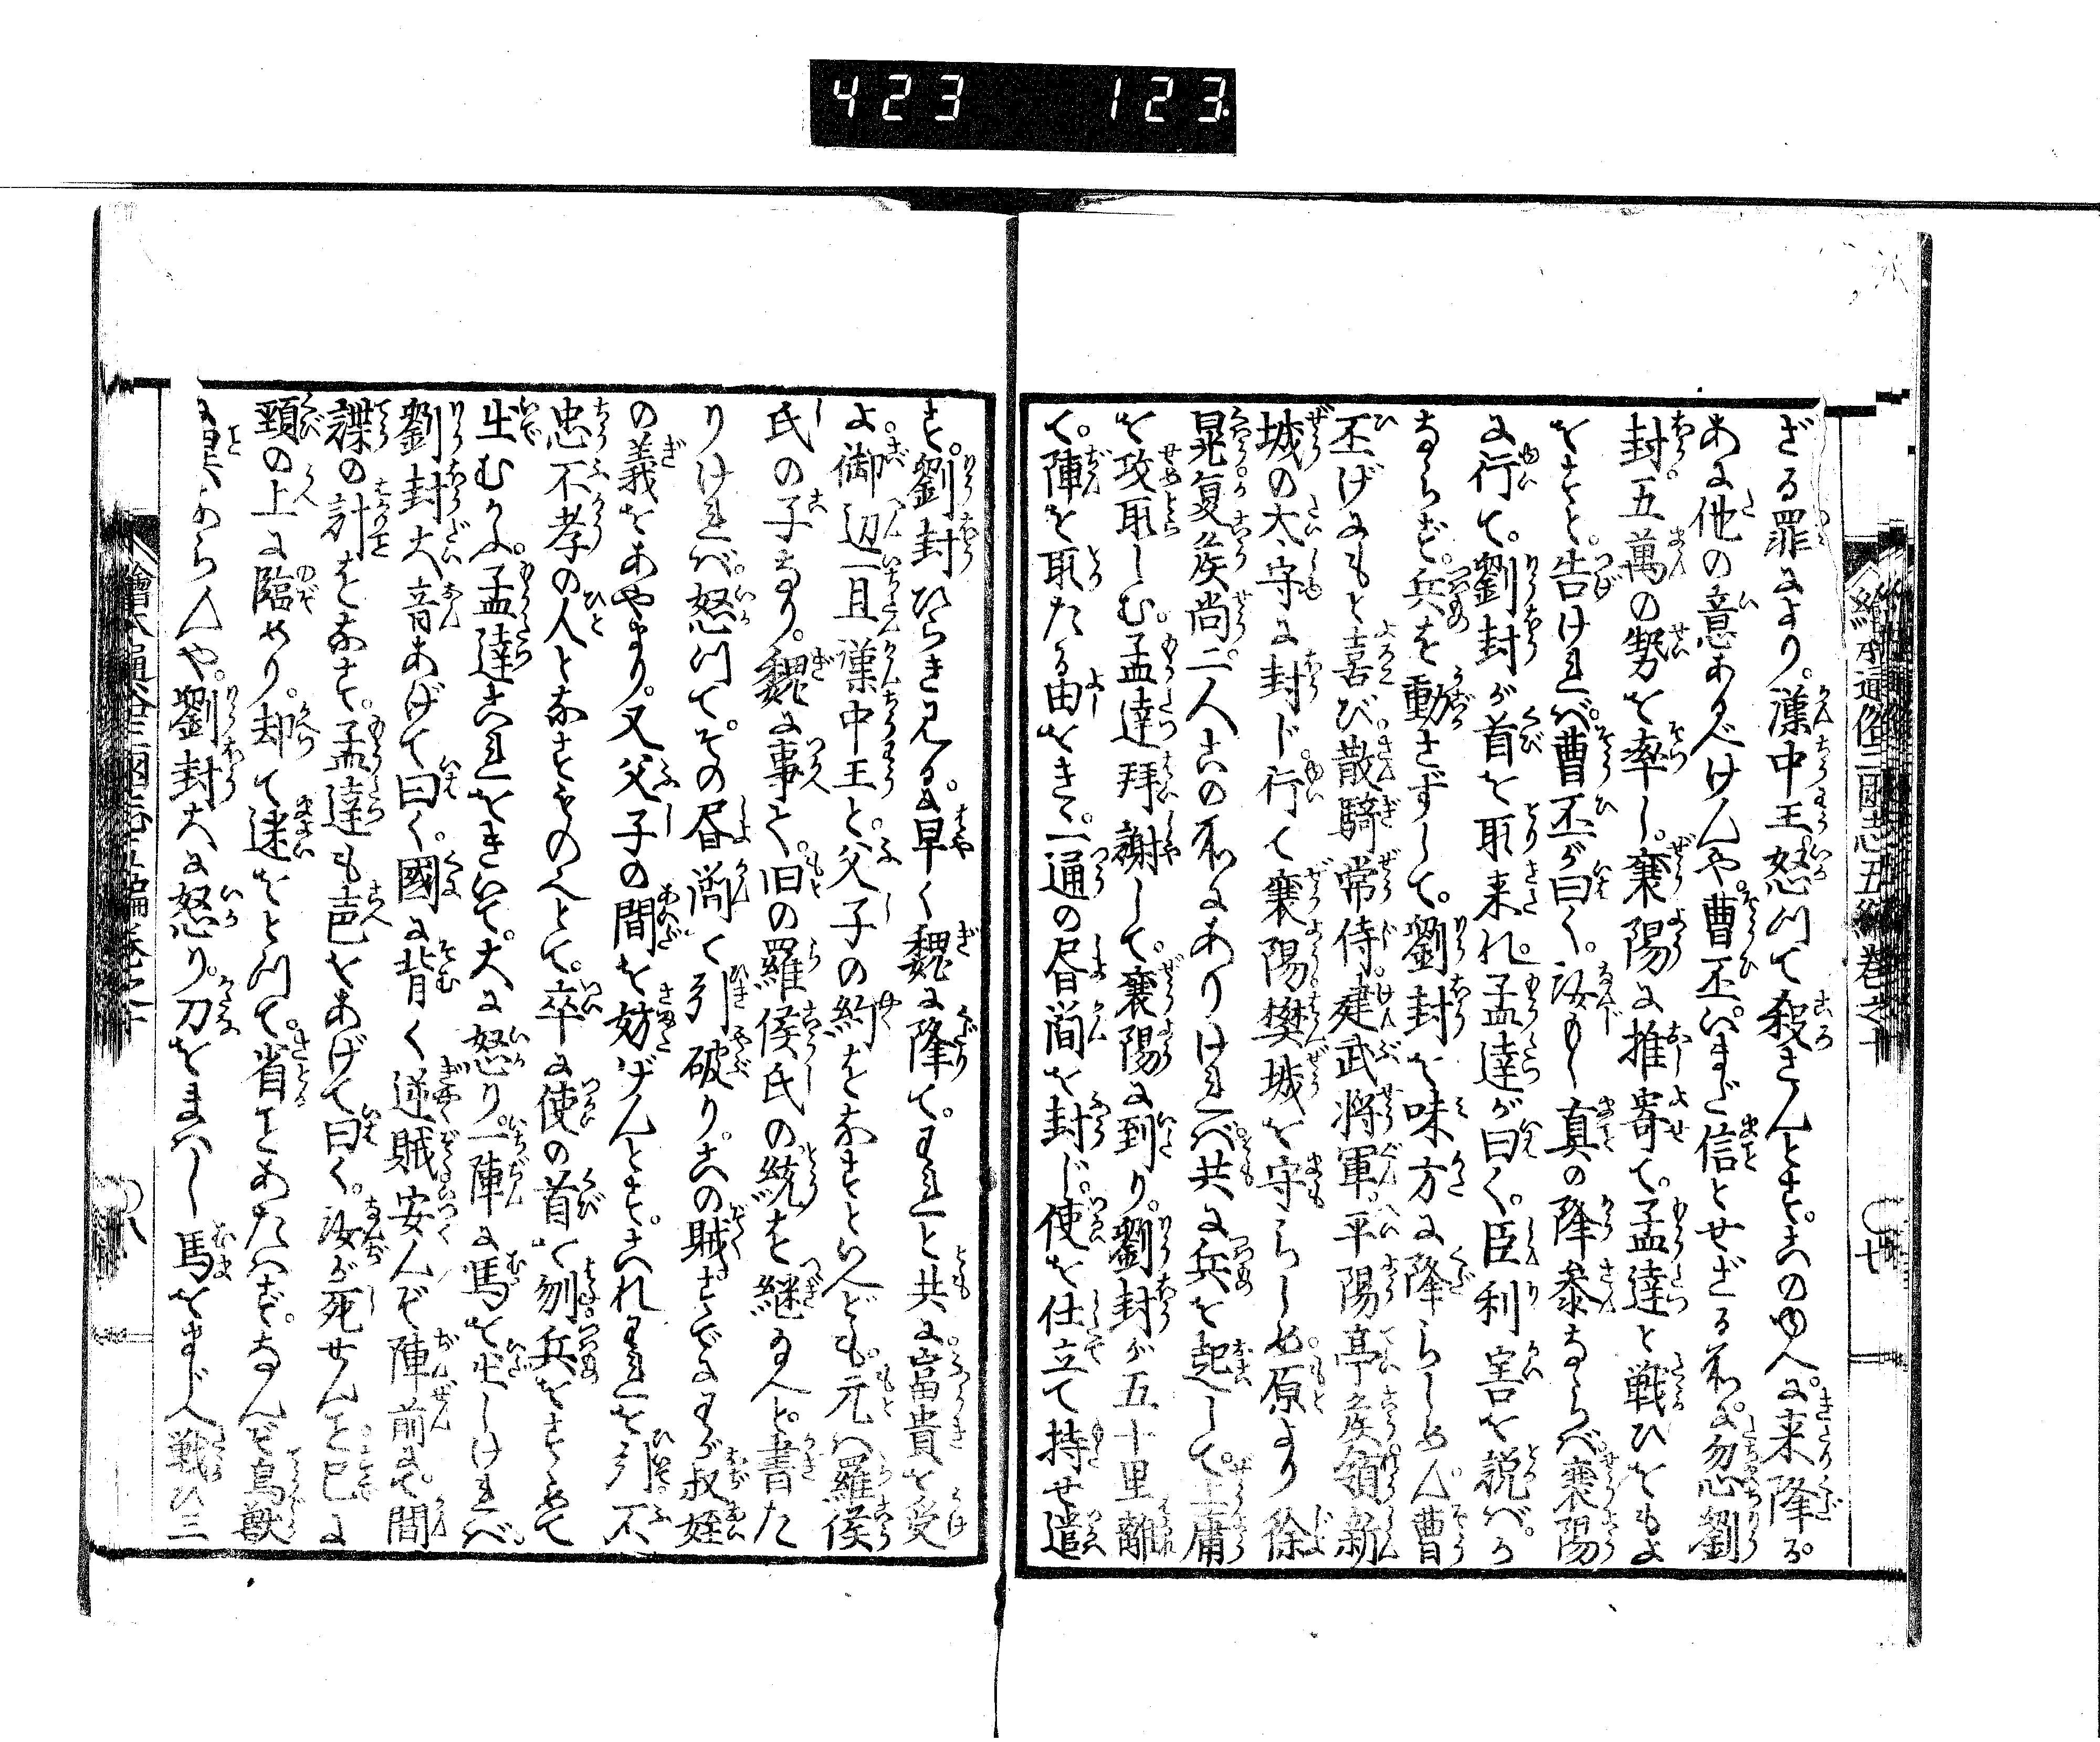 423 123
繪本通俗三國志五編卷之十
七
ざる罪により。漢中王怒つて殺さんとす。このゆへに来降る。
あに他の意あるべけんや。曹丕いまだ信とせざる所に忽劉
封五萬の勢を率し。襄陽に推寄て。孟達と戦ひをもよ
をすと。告けれバ。曹丕が曰く。汝もし真の降参ならバ。襄陽
に行て。劉封が首を取来れ。孟達が曰く。臣利害を説バ。か
ならず。兵を動さずして。劉封を味方に降らしめん。曹
丕げにもと喜び。散騎常侍。建武将軍。平陽亭侯領新
城の太守に封じ。行て襄陽樊城を守らしめ。原より徐
晃夏侯尚二人この所にありけれバ。共に兵を起して。上庸
を攻取しむ。孟達拜謝して。襄陽に到り。劉封が五十里離
て。陣を取たる由をきゝ。一通の書簡を封じ。使を仕立て持せ遣
す。劉封ひらき見るに。早く魏に降て。われと共に。富貴を受
よ。御辺一旦漢中王と。父子の約をなすといへども。元ハ羅侯
氏の子なり。魏に事て。旧の羅侯氏の統を継給へと。書た
りけれバ。怒つて。その書簡を引破り。この賊さきにわが叔姪
の義をあやまり。又父子の間を妨げんとす。これわれを引て不
忠不孝の人となすものへとて。卒に使の首を刎。兵をすゝめて
出むかふ。孟達これをきいて。大に怒り。一陣に馬を出しけれバ。
劉封大音あげて曰く。國に背く逆賊安んぞ陣前にて。間
諜の計をなす。孟達も声をあげて曰く。汝が死せんこと已に
頸の上に臨めり。却て迷をとつて。省ことあたハず。なんぞ鳥獣
に異ならんや。劉封大に怒り。刀をまハし馬をまじへ戦ひ三
繪本通俗三國志五編卷之十
八